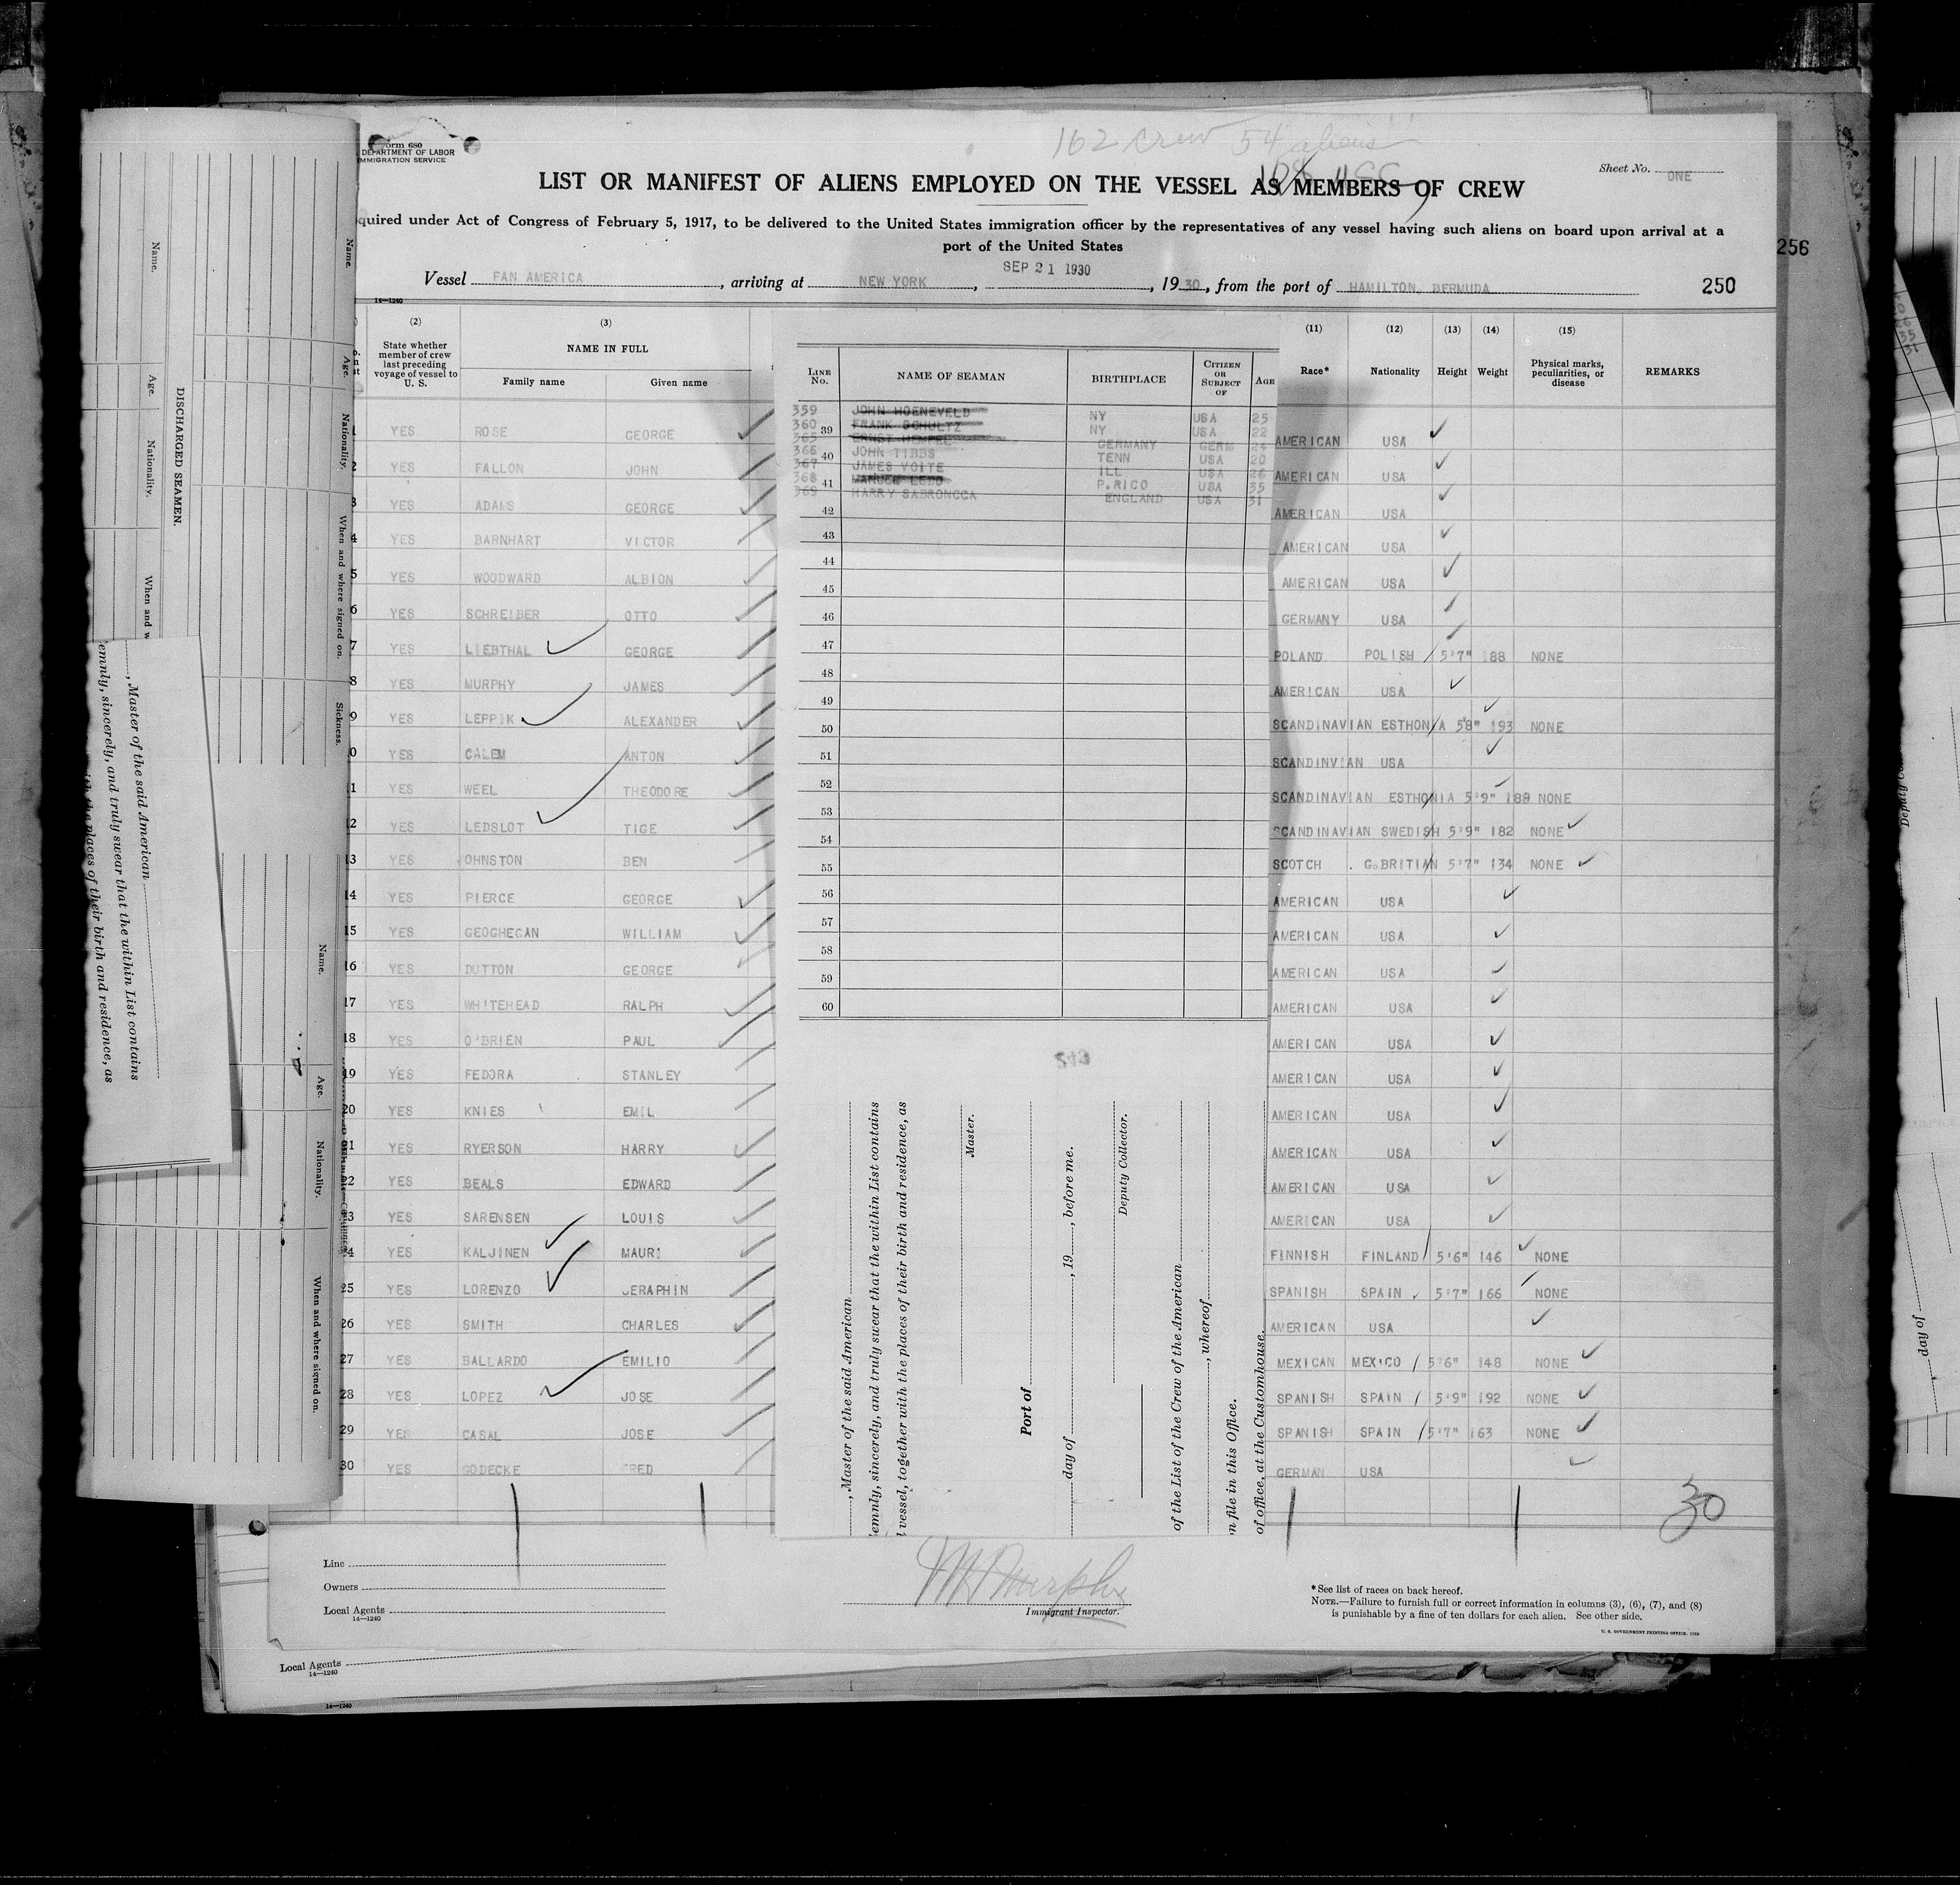 162 crew 54 aliens
108 USC
Form 680
DEPARTMENT OF LABOR
IMMIGRATION SERVICE
Sheet No. ONE
LIST OR MANIFEST OF ALIENS EMPLOYED ON THE VESSEL AS MEMBERS OF CREW
quired under Act of Congress of February 5, 1917, to be delivered to the United States immigration officer by the representatives of any vessel having such aliens on board upon arrival at a
port of the United States
256
SEP 21 1930
Vessel PAN AMERICA, arriving at NEW YORK, , 1930, from the port of HAMILTON, BERMUDA
250
14—1240
(2) (3) (11) (12) (13) (14) (15)
State whether member of crew last preceding voyage of vessel to U. S.
NAME IN FULL
Family name Given name
Race* Nationality Height Weight Physical marks, peculiarities, or disease REMARKS
1 YES ROSE GEORGE AMERICAN USA
2 YES FALLON JOHN AMERICAN USA
3 YES ADAMS GEORGE AMERICAN USA
4 YES BARNHART VICTOR AMERICAN USA
5 YES WOODWARD ALBION AMERICAN USA
6 YES SCHREIBER OTTO GERMANY USA
7 YES LIEBTHAL GEORGE POLAND POLISH 5'7" 188 NONE
8 YES MURPHY JAMES AMERICAN USA
9 YES LEPPIK ALEXANDER SCANDINAVIAN ESTHONIA 5'8" 193 NONE
0 YES CALEM ANTON SCANDINVIAN USA
1 YES WEEL THEODORE SCANDINAVIAN ESTHONIA 5'9" 188 NONE
2 YES LEDSLOT TIGE SCANDINAVIAN SWEDISH 5'9" 182 NONE
13 YES OHNSTON BEN SCOTCH G.BRITIAN 5'7" 134 NONE
14 YES PIERCE GEORGE AMERICAN USA
15 YES GEOGHEGAN WILLIAM AMERICAN USA
16 YES DUTTON GEORGE AMERICAN USA
17 YES WHITEHEAD RALPH AMERICAN USA
18 YES O'BRIEN PAUL AMERICAN USA
19 YES FEDORA STANLEY AMERICAN USA
20 YES KNIES EMIL AMERICAN USA
21 YES RYERSON HARRY AMERICAN USA
22 YES BEALS EDWARD AMERICAN USA
23 YES SARENSEN LOUIS AMERICAN USA
24 YES KALJINEN MAURI FINNISH FINLAND 5'6" 146 NONE
25 YES LORENZO JERAPHIN SPANISH SPAIN 5'7" 166 NONE
26 YES SMITH CHARLES AMERICAN USA
27 YES BALLARDO EMILIO MEXICAN MEXICO 5'6" 148 NONE
28 YES LOPEZ JOSE SPANISH SPAIN 5'9" 192 NONE
29 YES CASAL JOSE SPANISH SPAIN 5'7" 163 NONE
30 YES GODECKE FRED GERMAN USA
30
LINE No. NAME OF SEAMAN BIRTHPLACE CITIZEN OR SUBJECT OF AGE
359 JOHN HOENEVELD NY USA 25
360 FRANK SCHULTZ NY USA 22
39
365 ERNST HEMPEL GERMANY GERM 24
366 JOHN TIBBS TENN USA 20
40
367 JAMES VOITE ILL USA 26
368 MANUEL LEDO P.RICO USA 35
41
369 HARRY SABRONCCA ENGLAND USA 31
42
43
44
45
46
47
48
49
50
51
52
53
54
55
56
57
58
59
60
543
, Master of the said American
emnly, sincerely, and truly swear that the within List contains
l vessel, together with the places of their birth and residence, as
Master.
Port of
day of , 19 , before me.
Deputy Collector.
of the List of the Crew of the American
, whereof
n file in this Office.
of office, at the Customhouse.
DISCHARGED SEAMEN.
Name. Age. Nationality. When and w
Name. Age. Nationality. When and where signed on. Sickness.
Name. Age. Nationality. When and where signed on.
, Master of the said American
emnly, sincerely, and truly swear that the within List contains
ith the places of their birth and residence, as
Line
Owners
Local Agents
14—1240
Murphy
Immigrant Inspector.
*See list of races on back hereof.
NOTE.—Failure to furnish full or correct information in columns (3), (6), (7), and (8)
is punishable by a fine of ten dollars for each alien. See other side.
U. S. GOVERNMENT PRINTING OFFICE. 1929
Local Agents
14—1240
14—1240
day of